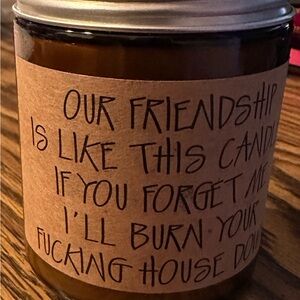 OUR FRIENDSHIP
IS LIKE THIS CANDLE
IF YOU FORGET ME
I'LL BURN YOUR
FUCKING HOUSE DOWN